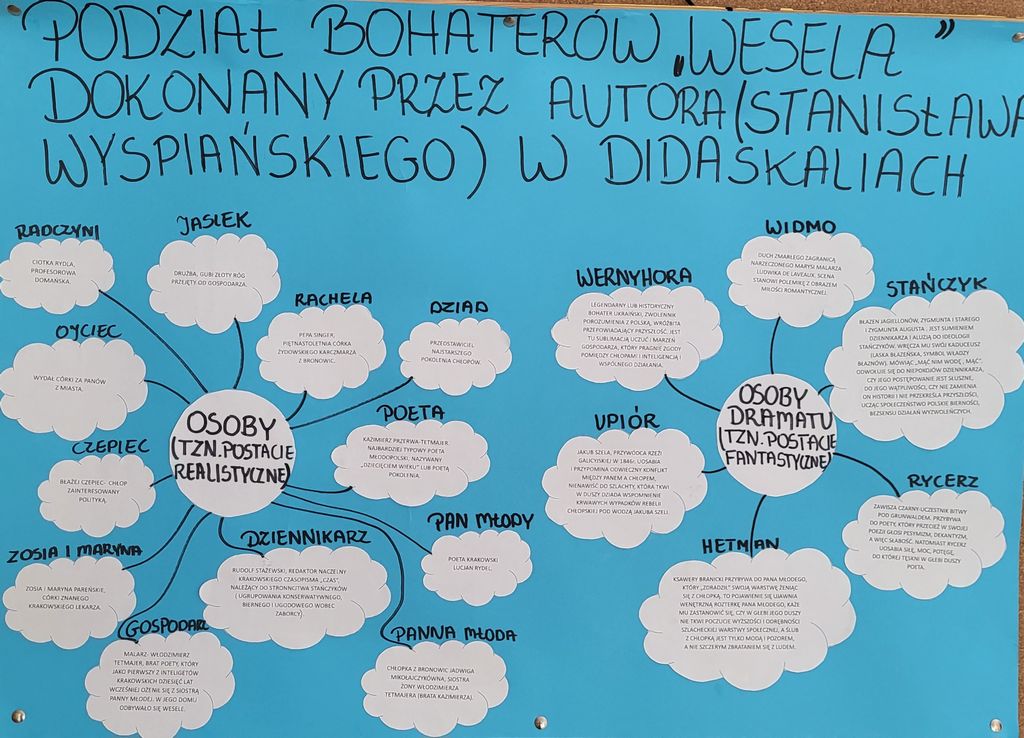 PODZIAŁ BOHATERÓW „WESELA”
DOKONANY PRZEZ AUTORA (STANISŁAWA
WYSPIAŃSKIEGO) W DIDASKALIACH
RADCZYNI
CIOTKA RYDLA,
PROFESOROWA
DOMAŃSKA.
JASIEK
DRUŻBA, GUBI ZŁOTY RÓG
PRZEJĘTY OD GOSPODARZA.
RACHELA
PEPA SINGER,
PIĘTNASTOLETNIA CÓRKA
ŻYDOWSKIEGO KARCZMARZA
Z BRONOWIC.
DZIAD
PRZEDSTAWICIEL
NAJSTARSZEGO
POKOLENIA CHŁOPÓW.
OJCIEC
WYDAŁ CÓRKI ZA PANÓW
Z MIASTA.
OSOBY
(TZN. POSTACIE
REALISTYCZNE)
POETA
KAZIMIERZ PRZERWA-TETMAJER.
NAJBARDZIEJ TYPOWY POETA
MŁODOPOLSKI, NAZYWANY
„DZIECIĘCIEM WIEKU” LUB POETĄ
POKOLENIA.
CZEPIEC
BŁAŻEJ CZEPIEC- CHŁOP
ZAINTERESOWANY
POLITYKĄ.
ZOSIA I MARYNA
ZOSIA I MARYNA PAREŃSKIE,
CÓRKI ZNANEGO
KRAKOWSKIEGO LEKARZA.
DZIENNIKARZ
RUDOLF STAŻEWSKI, REDAKTOR NACZELNY
KRAKOWSKIEGO CZASOPISMA „CZAS”,
NALEŻĄCY DO STRONNICTWA STAŃCZYKÓW
( UGRUPOWANIA KONSERWATYWNEGO,
BIERNEGO I UGODOWEGO WOBEC
ZABORCY).
PAN MŁODY
POETA KRAKOWSKI
LUCJAN RYDEL.
GOSPODARZ
MALARZ- WŁODZIMIERZ
TETMAJER, BRAT POETY, KTÓRY
JAKO PIERWSZY Z INTELIGETÓW
KRAKOWSKICH DZIESIĘĆ LAT
WCZEŚNIEJ OŻENIŁ SIĘ Z SIOSTRĄ
PANNY MŁODEJ. W JEGO DOMU
ODBYWAŁO SIĘ WESELE.
PANNA MŁODA
CHŁOPKA Z BRONOWIC JADWIGA
MIKOŁAJCZYKÓWNA, SIOSTRA
ŻONY WŁODZIMIERZA
TETMAJERA (BRATA KAZIMIERZA).
WIDMO
DUCH ZMARŁEGO ZAGRANICĄ
NARZECZONEGO MARYSI MALARZA
LUDWIKA DE LAVEAUX. SCENA
STANOWI POLEMIKĘ Z OBRAZEM
MIŁOŚCI ROMANTYCZNEJ.
WERNYHORA
LEGENDARNY LUB HISTORYCZNY
BOHATER UKRAIŃSKI, ZWOLENNIK
POROZUMIENIA Z POLSKĄ, WRÓŻBITA
PRZEPOWIADAJĄCY PRZYSZŁOŚĆ. JEST
TU SUBLIMACJĄ UCZUĆ I MARZEŃ
GOSPODARZA, KTÓRY PRAGNIE ZGODY
POMIĘDZY CHŁOPAMI I INTELIGENCJĄ I
WSPÓLNEGO DZIAŁANIA.
STAŃCZYK
BŁAZEN JAGIELLONÓW, ZYGMUNTA I STAREGO
I ZYGMUNTA AUGUSTA , JEST SUMIENIEM
DZIENNIKARZA I ALUZJĄ DO IDEOLOGII
STAŃCZYKÓW. WRĘCZA MU SWÓJ KADUCEUSZ
(LASKA BŁAZEŃSKA, SYMBOL WŁADZY
BŁAZNÓW). MÓWIĄC „MĄĆ NIM WODĘ , MĄĆ”.
ODWOŁUJE SIĘ DO NIEPOKOJÓW DZIENNIKARZA,
CZY JEGO POSTĘPOWANIE JEST SŁUSZNE,
DO JEGO WĄTPLIWOŚCI, CZY NIE ZAMIENIA
ON HISTORII I NIE PRZEKREŚLA PRZYSZŁOŚCI,
UCZĄC SPOŁECZEŃSTWO POLSKIE BIERNOŚCI,
BEZSENSU DZIAŁAŃ WYZWOLEŃCZYCH.
OSOBY
DRAMATU
(TZN. POSTACIE
FANTASTYCZNE)
UPIÓR
JAKUB SZELA, PRZYWÓDCA RZEZI
GALICYJSKIEJ W 1846r. UOSABIA
I PRZYPOMINA ODWIECZNY KONFLIKT
MIĘDZY PANEM A CHŁOPEM,
NIENAWIŚĆ DO SZLACHTY, KTÓRA TKWI
W DUSZY DZIADA WSPOMNIENIE
KRWAWYCH WYPADKÓW REBELII
CHŁOPSKIEJ POD WODZĄ JAKUBA SZELI.
RYCERZ
ZAWISZA CZARNY-UCZESTNIK BITWY
POD GRUNWALDEM. PRZYBYWA
DO POETY, KTÓRY PRZECIEŻ W SWOJEJ
POEZJI GŁOSI PESYMIZM, DEKANTYZM,
A WIĘC SŁABOŚĆ. NATOMIAST RYCERZ
UOSABIA SIŁĘ, MOC, POTĘGĘ,
DO KTÓREJ TĘSKNI W GŁĘBI DUSZY
POETA.
HETMAN
KSAWERY BRANICKI PRZYBYWA DO PANA MŁODEGO,
KTÓRY „ZDRADZIŁ” SWOJĄ WARSTWĘ ŻENIĄC
SIĘ Z CHŁOPKĄ, TO POJAWIENIE SIĘ UJAWNIA
WENĘTRZNĄ ROZTERKĘ PANA MŁODEGO, KAŻE
MU ZASTANOWIĆ SIĘ, CZY W GŁĘBI JEGO DUSZY
NIE TKWI POCZUCIE WYŻSZOŚCI I ODRĘBNOŚCI
SZLACHECKIEJ WARSTWY SPOŁECZNEJ, A ŚLUB
Z CHŁOPKĄ JEST TYLKO MODĄ I POZOREM,
A NIE SZCZERYM ZBRATANIEM SIĘ Z LUDEM.